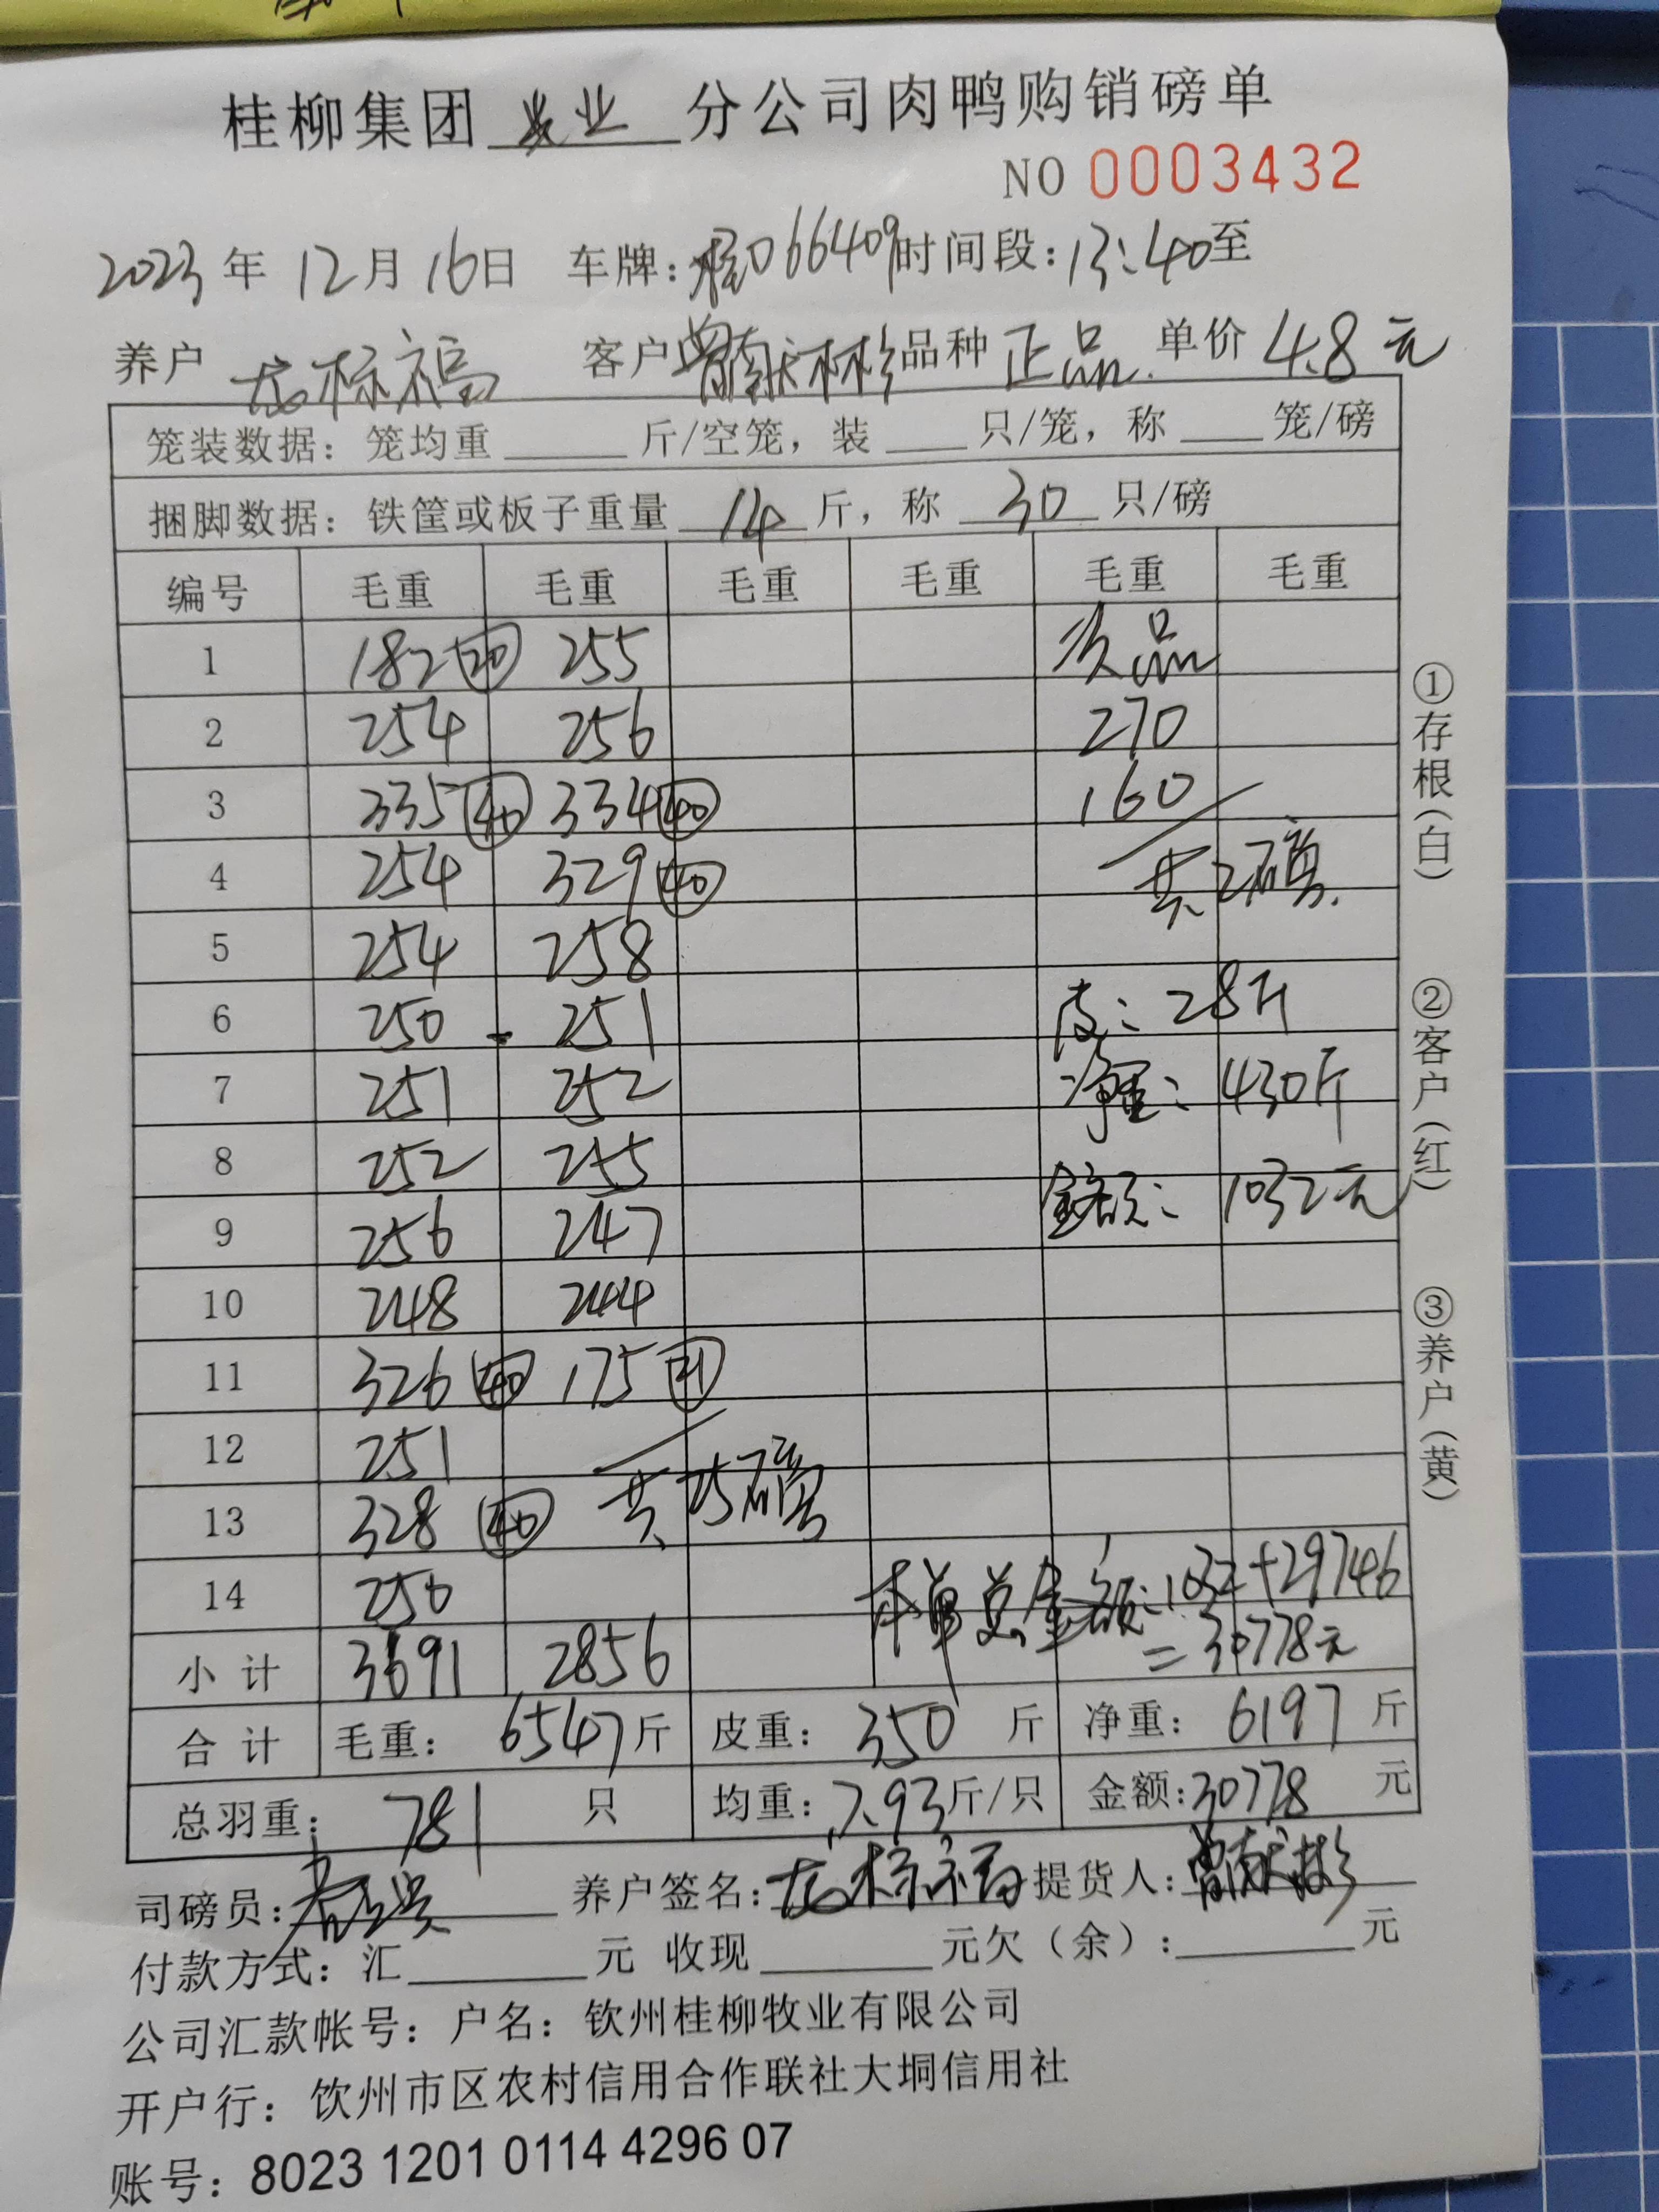 桂柳集团 牧业 分公司肉鸭购销磅单
NO 0003432
2023 年 12 月 16 日 车牌: 桂D66409 时间段: 13:40 至
养户 龙标福 客户 曾献彬 品种 正品. 单价 4.8 元
笼装数据: 笼均重 ____ 斤/空笼, 装 ___ 只/笼, 称 ___ 笼/磅
捆脚数据: 铁筐或板子重量 14 斤, 称 30 只/磅
编号 毛重 毛重 毛重 毛重 毛重 毛重
1 182 (20) 255 次品
2 254 256 270
3 335 (40) 334 (40) 160
4 254 329 (40) 共2磅.
5 254 258
6 250 251 皮: 28斤
7 251 252 净重: 430斤
8 252 255
9 256 247 金额: 1032元
10 248 244
11 326 (40) 175 (21)
12 251
13 328 (40) 共25磅
14 250 本单总金额: 1032+29746
小计 3691 2856 =30778元
合计 毛重: 6547 斤 皮重: 350 斤 净重: 6197 斤
总羽重: 781 只 均重: 7.93 斤/只 金额: 30778 元
司磅员: 养户签名: 龙标福 提货人: 曾献彬
付款方式: 汇 ____ 元 收现 ____ 元欠(余): ____ 元
公司汇款帐号: 户名: 钦州桂柳牧业有限公司
开户行: 钦州市区农村信用合作联社大垌信用社
账号: 8023 1201 0114 4296 07
①存根(白)
②客户(红)
③养户(黄)